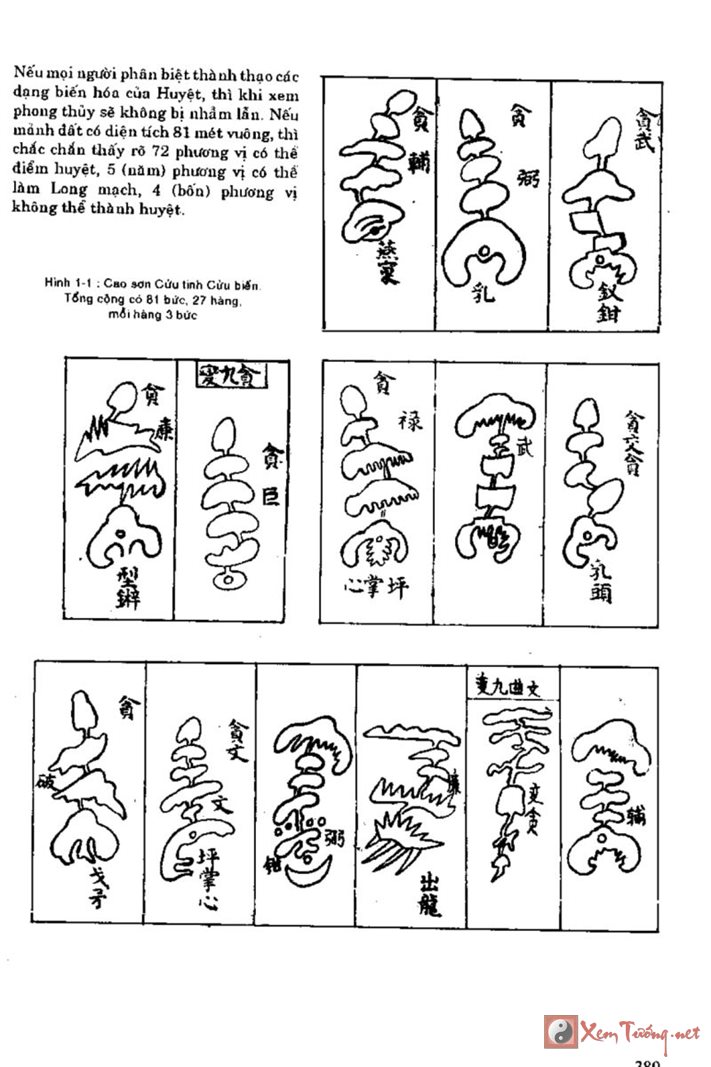 Nếu mọi người phân biệt thành thạo các
dạng biến hóa của Huyệt, thì khi xem
phong thủy sẽ không bị nhầm lẫn. Nếu
mảnh đất có diện tích 81 mét vuông, thì
chắc chắn thấy rõ 72 phương vị có thể
điểm huyệt, 5 (năm) phương vị có thể
làm Long mạch, 4 (bốn) phương vị
không thể thành huyệt.
Hình 1-1 : Cao sơn Cửu tinh Cửu biến.
Tổng cộng có 81 bức, 27 hàng,
mỗi hàng 3 bức
貪
輔
燕窠
貪
弼
乳
貪武
釵鉗
貪
廉
變九貪
貪
巨
貪
祿
心掌坪
武
貪
乳頭
貪
破
戈矛
貪文
文
坪掌心
弼
鉗
廉
出龍
變九曲文
変貪
輔
XemTướng.net
389